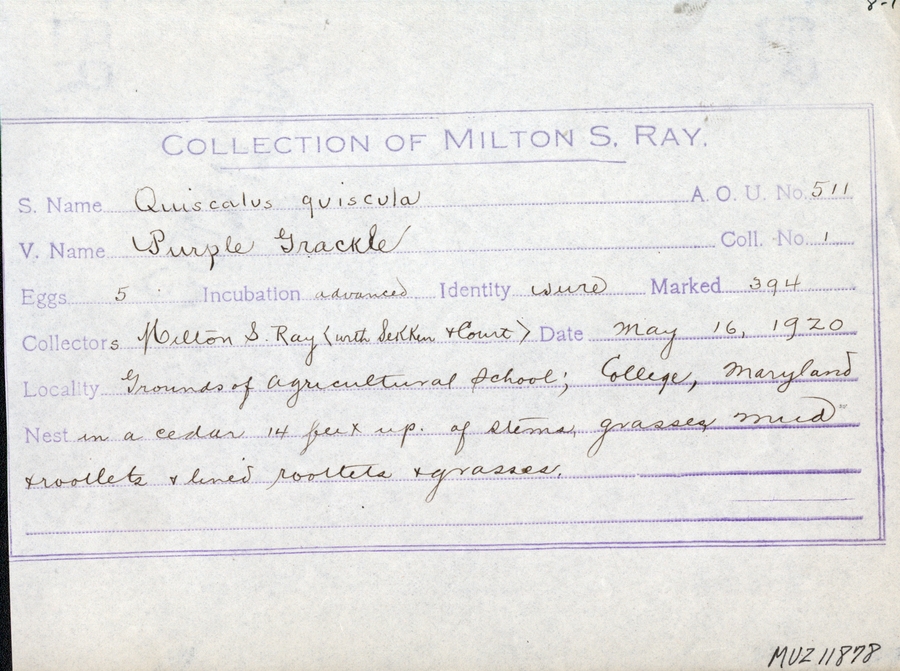 8-1
COLLECTION OF MILTON S. RAY.
S. Name Quiscalus quiscula A. O. U. No. 511
V. Name Purple Grackle Coll. No. 1
Eggs 5 Incubation advanced Identity sure Marked 394
Collectors Milton S. Ray (with & Court) Date May 16, 1920
Locality Grounds of Agricultural School; College, Maryland
Nest in a cedar 14 feet up. of stems, grasses, mud
& rootlets & lined rootlets & grasses.
MVZ 11878